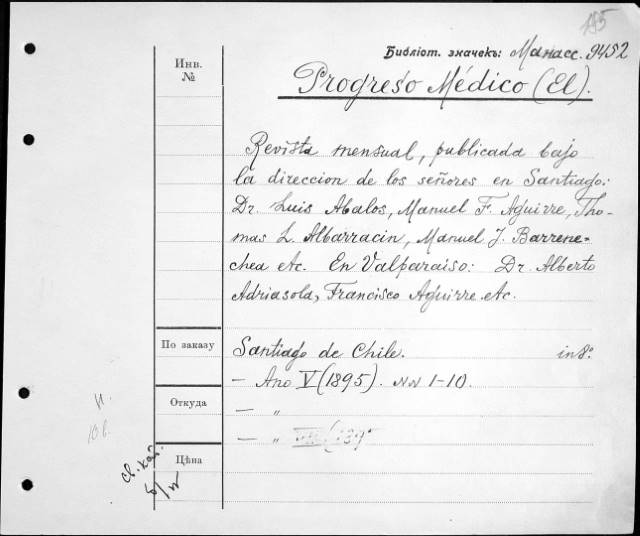 185
Библіот. значекъ: Манасс. 9452
Инв.
№
Progreso Médico (El).
Revista mensual, publicada bajo
la direccion de los señores en Santiago:
Dr. Luis Abalos, Manuel F. Aguirre, Tho-
mas L. Albarracin, Manuel J. Barrene-
chea etc. En Valparaiso: Dr. Alberto
Adriasola, Francisco Aguirre etc.
По заказу
Santiago de Chile. in 8°.
— Ano V (1895). NN 1-10.
Откуда
— „
— „ VII (189
Цѣна
св. кат.